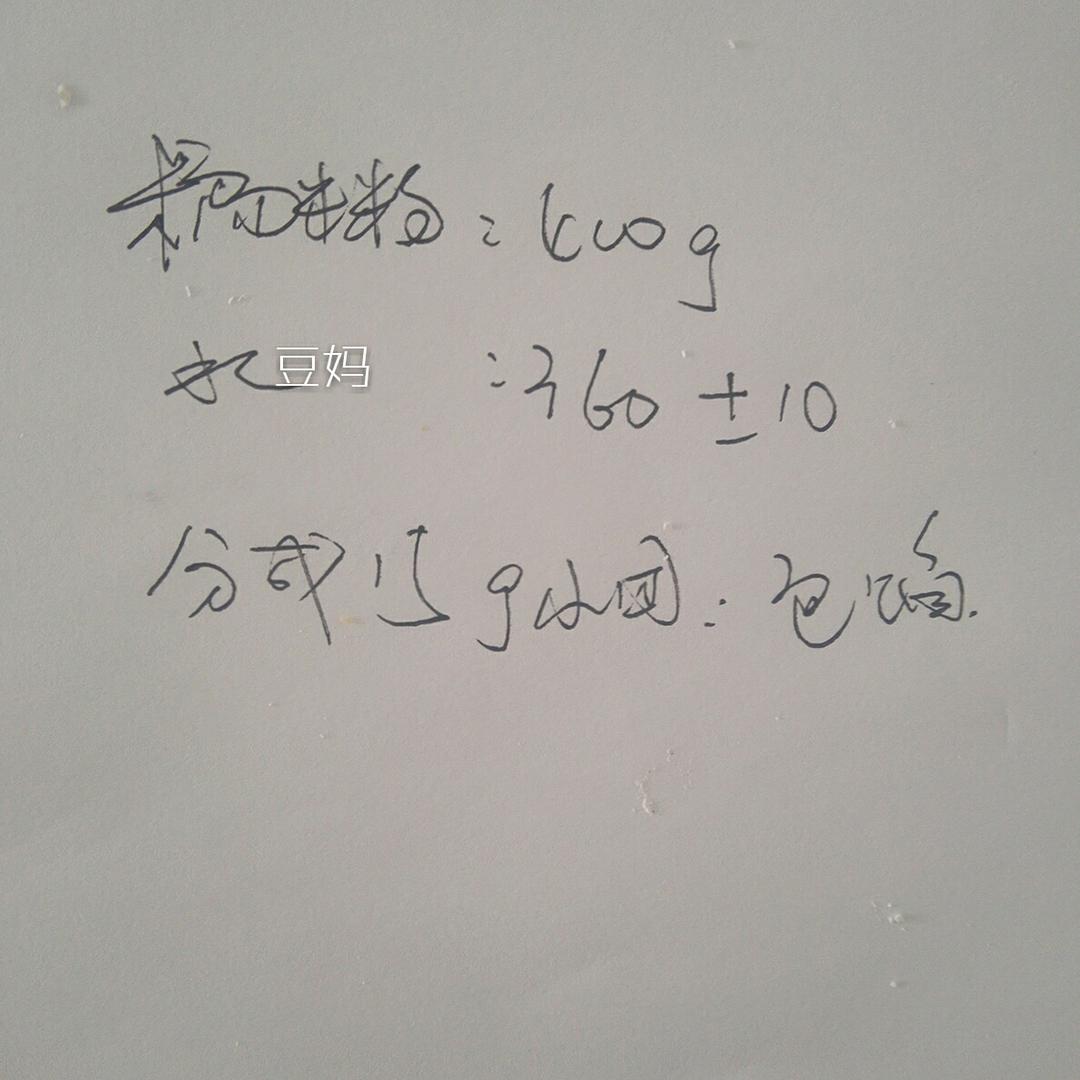 糯米粉：500g
水豆妈：360±10
分成15g小团：包馅.